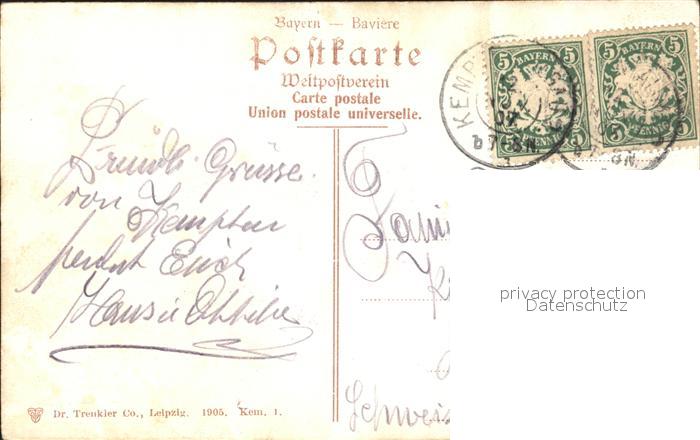 Bayern — Bavière
Postkarte
Weltpostverein
Carte postale
Union postale universelle.
5 5
BAYERN
5 PFENNIG 5
5 5
BAYERN
5 PFENNIG 5
KEMP
07
7-8 N.
Freundl. Grüsse
von Kempten
sendet Euch
Hans u Ottilie
Schweis
privacy protection
Datenschutz
Dr. Trenkler Co., Leipzig. 1905. Kem. 1.